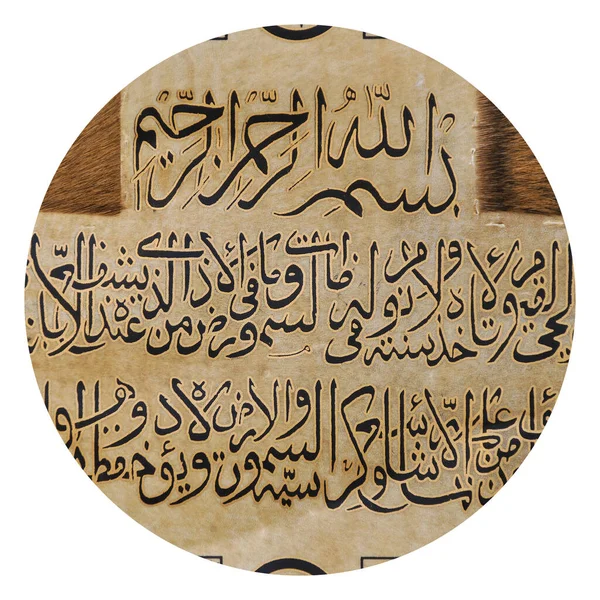 بسم الله الرحمن الرحيم
القيوم لا تاخذه سنته ولا نوم له ما في السموات وما في الارض من ذا الذي يشفع عنده الا
الا بما شاء وسع كرسيه السموات والارض ولا